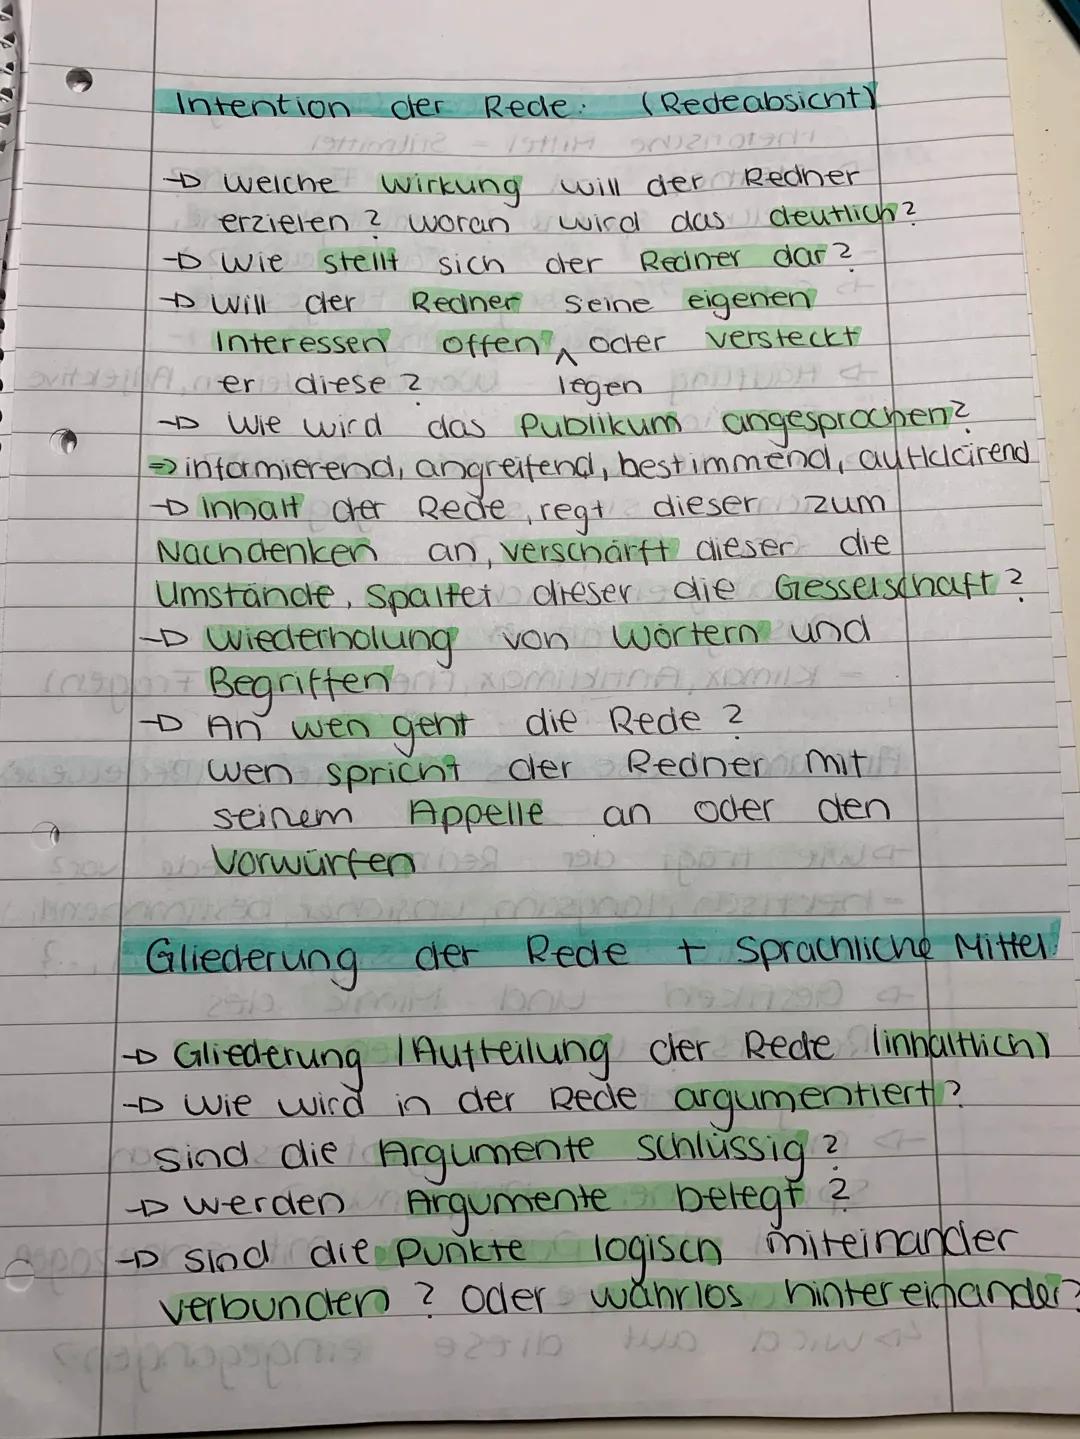 Intention der Rede: (Redeabsicht)
→ Welche Wirkung will der Redner
erzielen? woran wird das deutlich?
→ Wie stellt sich der Redner dar?
→ Will der Redner seine eigenen
Interessen offen ^ oder versteckt
er diese? legen
→ Wie wird das Publikum angesprochen?
⇒ informierend, angreifend, bestimmend, aufklärend
→ Inhalt der Rede, regt dieser zum
Nachdenken an, verschärft dieser die
Umstände, Spaltet dieser die Gesselschaft?
→ Wiederholung von Wörtern und
Begriffen
→ An wen geht die Rede?
Wen spricht der Redner mit
seinem Appelle an oder den
Vorwürfen
Gliederung der Rede + Sprachliche Mittel:
→ Gliederung / Aufteilung der Rede (inhaltlich)
→ Wie wird in der Rede argumentiert?
Sind die Argumente schlüssig?
→ Werden Argumente belegt?
→ Sind die Punkte logisch miteinander
verbunden? Oder wahrlos hintereinander?